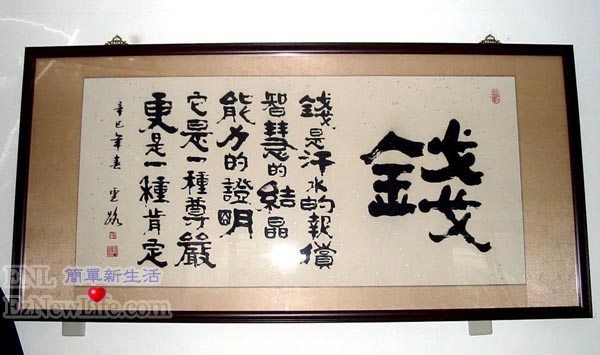 錢
錢是汗水的報償
智慧的結晶
能力的證明
它是一種尊嚴
更是一種肯定
辛巳年春
ENL 簡單新生活
EzNewLife.com